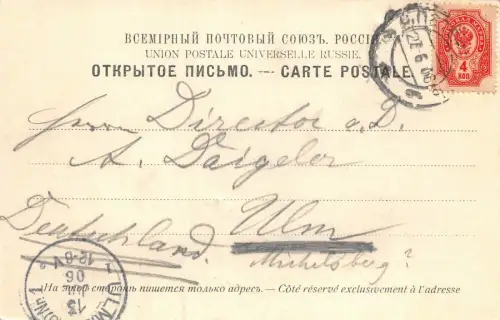 ВСЕМІРНЫЙ ПОЧТОВЫЙ СОЮЗЪ. РОССІЯ
UNION POSTALE UNIVERSELLE RUSSIE.
ОТКРЫТОЕ ПИСЬМО. — CARTE POSTALE.
4
КОП
Herrn Director a. D.
A. Daigeler
Ulm
Deutschland.
Michelsberg?
На этой сторонѣ пишется только адресъ. — Côté réservé exclusivement à l'adresse
ULM
13
06
12-6V
1